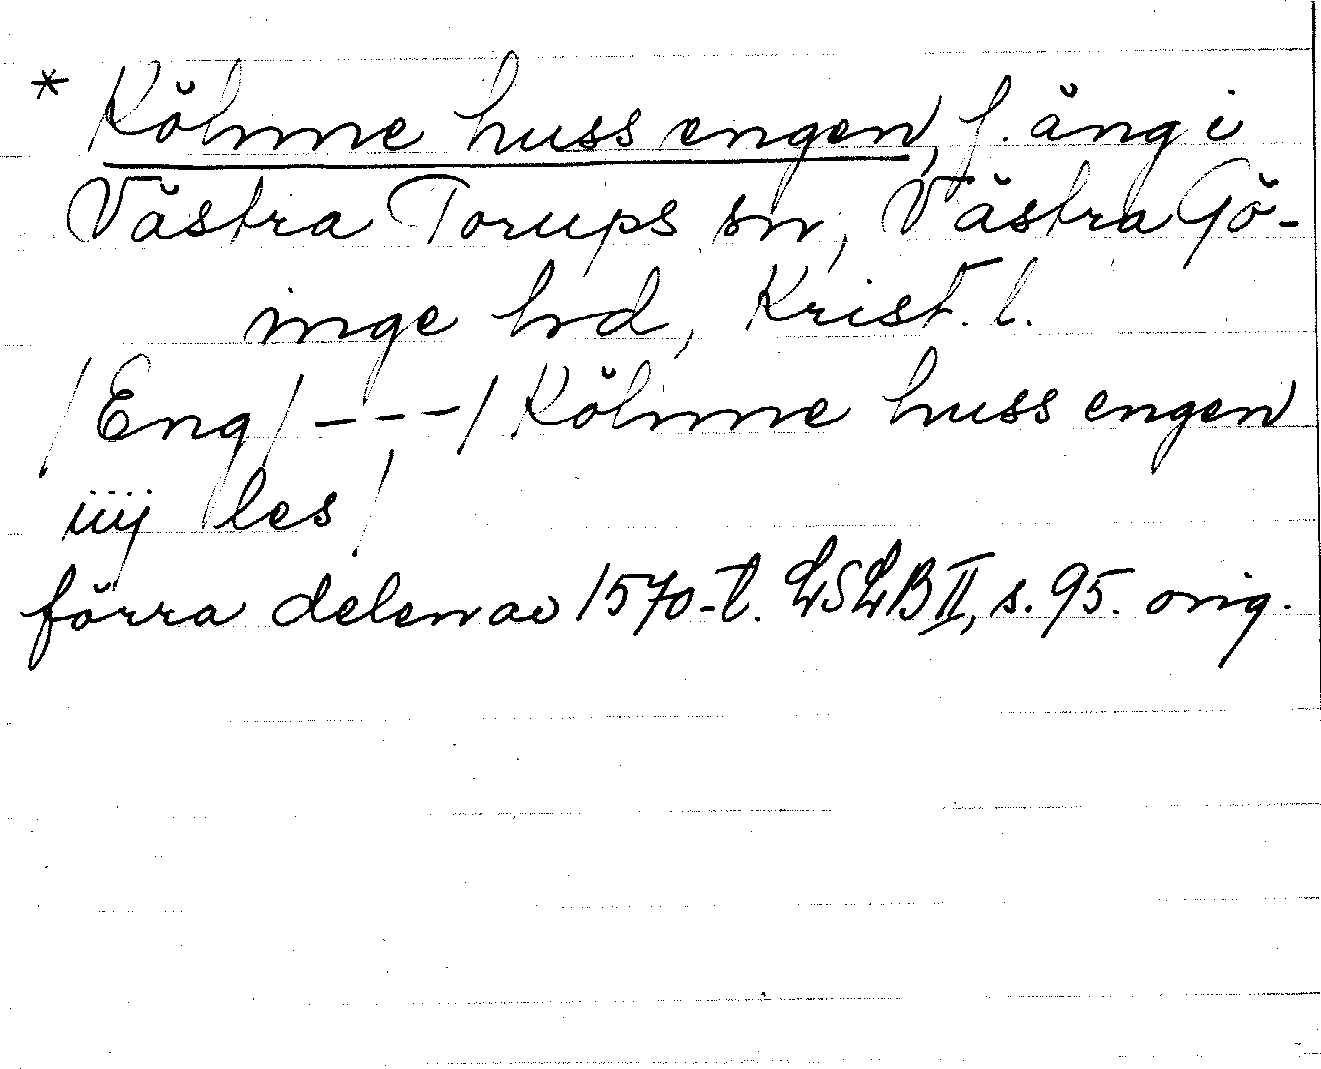 * Köhme huss engen, f. äng i
Västra Torups sn, Västra Gö-
inge hd, Krist. l.
/Eng/ - - - / Köhme huss engen
iiij les /
förra delen av 1570-t. LSLB II, s. 95. orig.